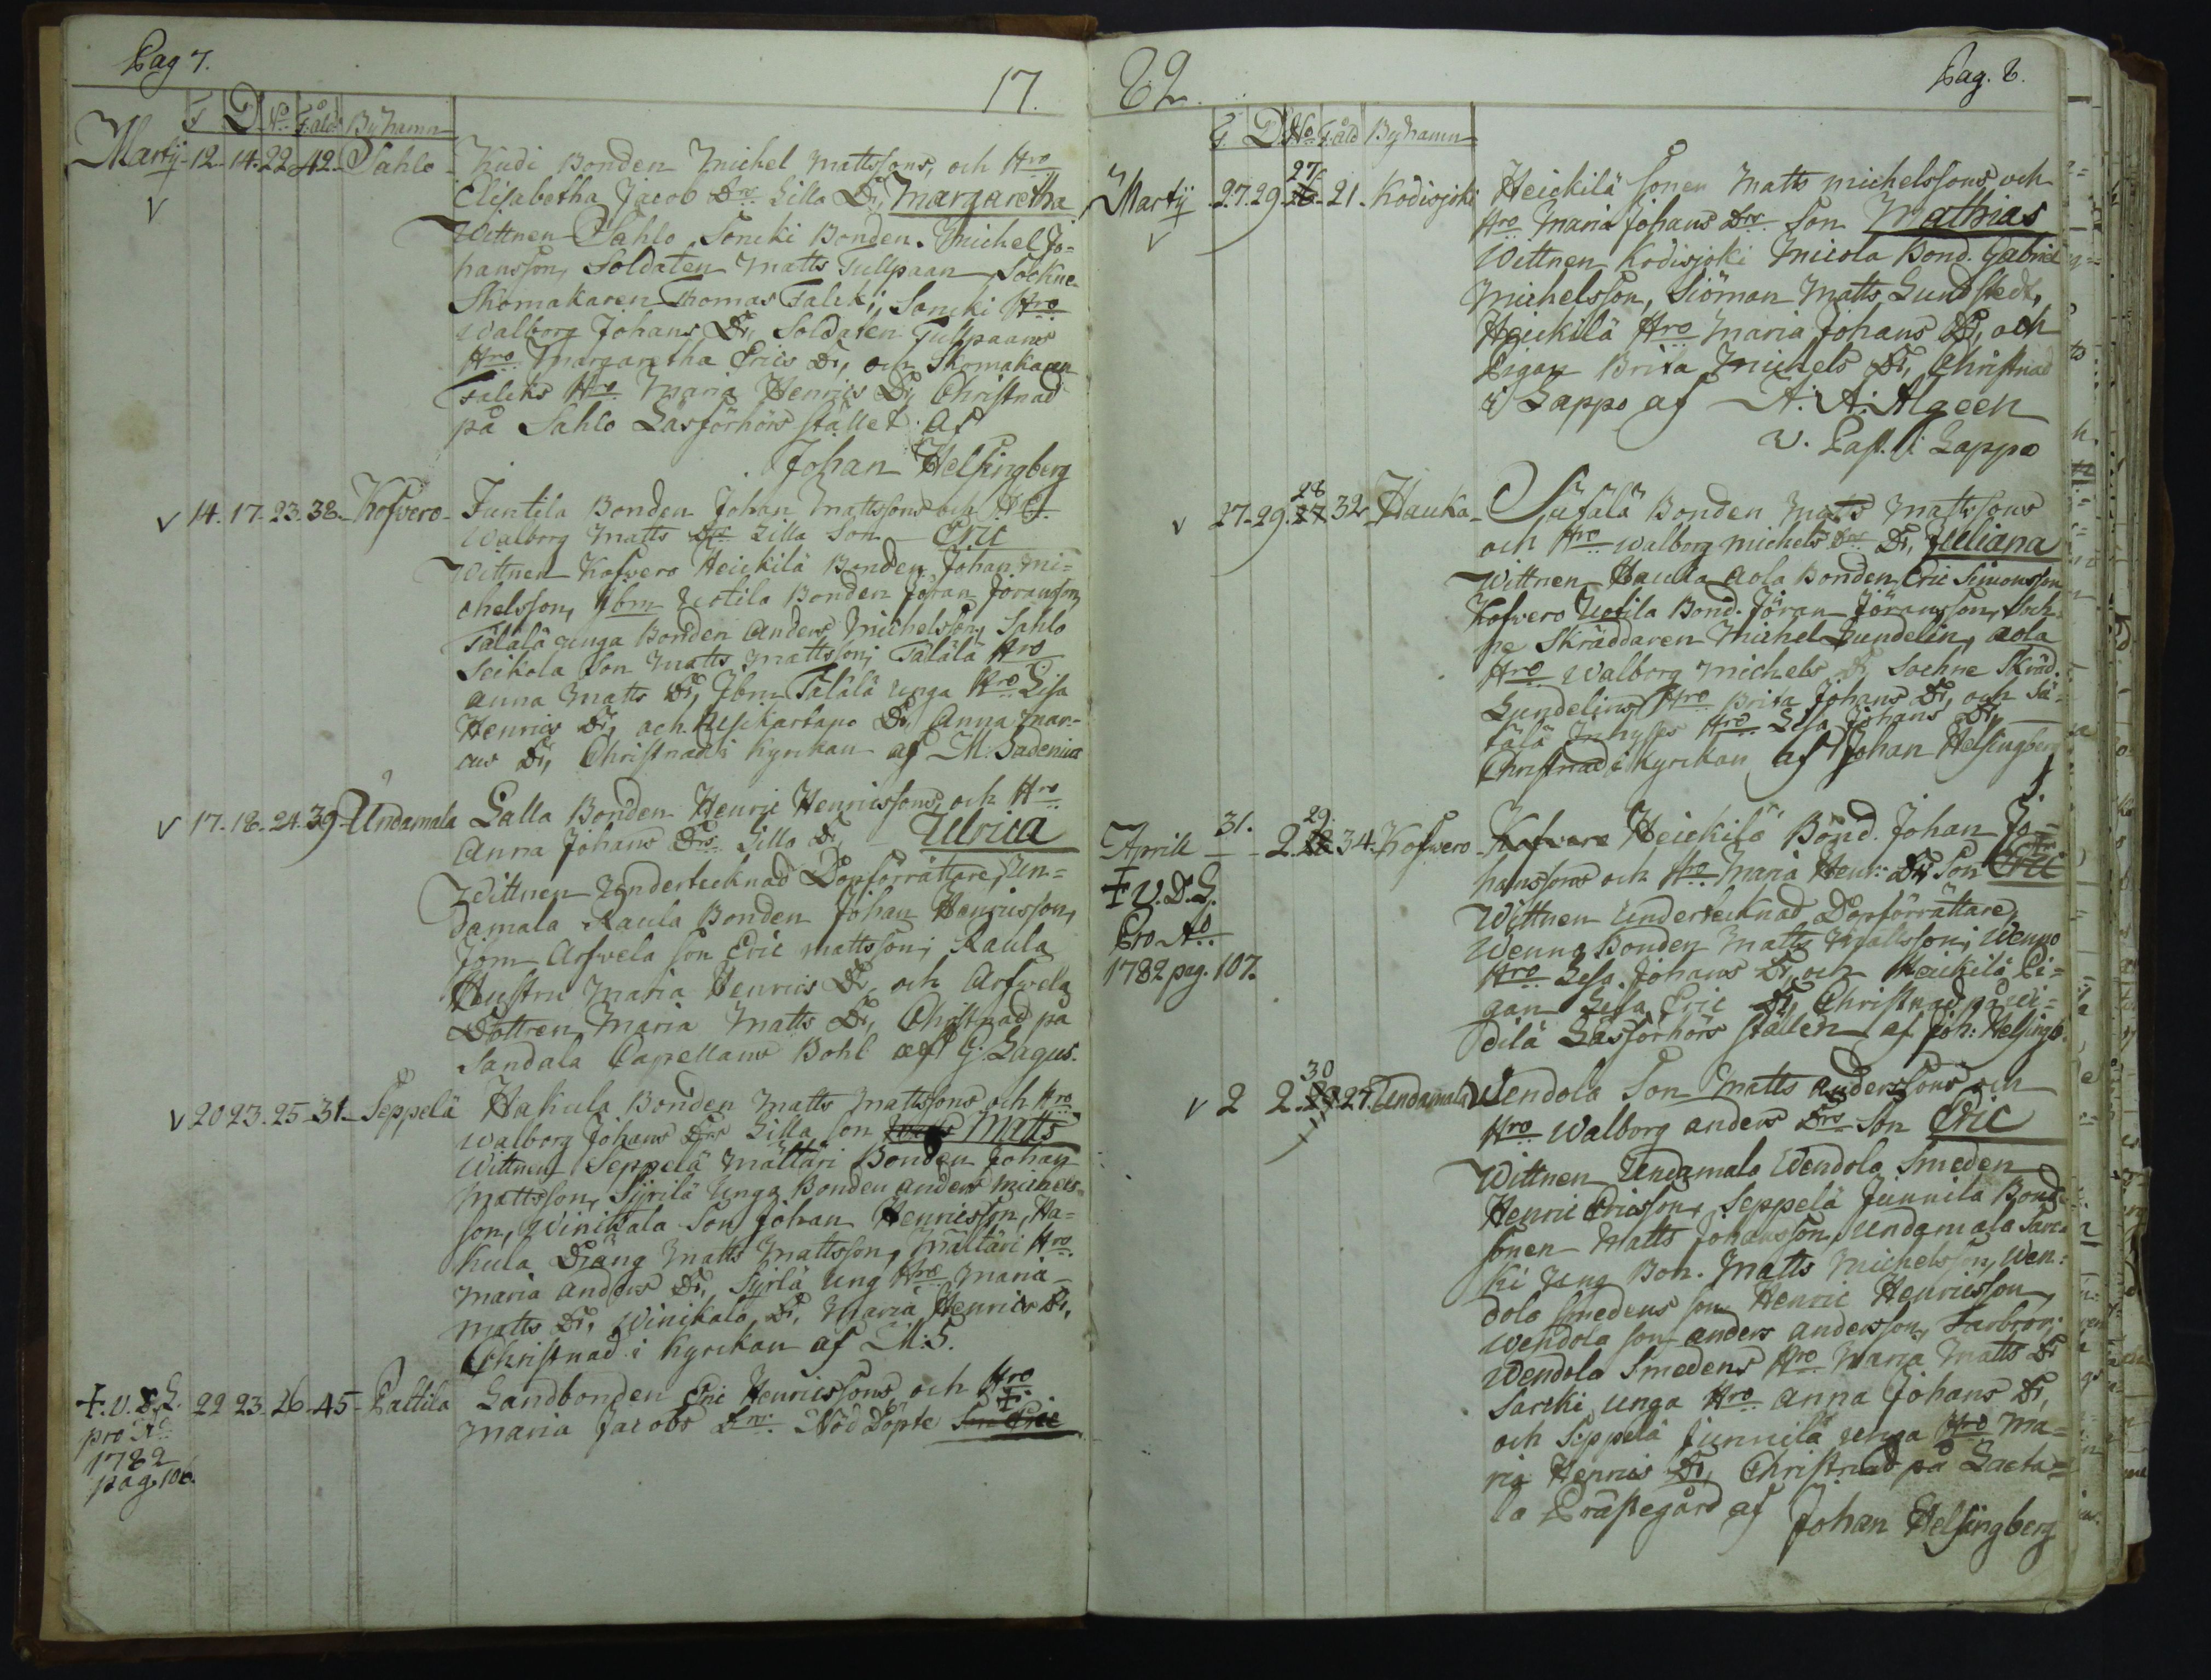 Pag 7.
17.
F. D. No F.åld. Byhamn
Martij 12. 14. 22. 42. Sahlo Kudi Bonden Michel Mattssons, och Hro
Elisabetha Jacob Dr. Lilla Dr, Margaretha
Wittnen Sahlo Soncki Bonden Michel Jo=
hansson, Soldaten Matts Tullpaan, Sockne
Skomakaren Thomas Falck; Soncki Hro
Walborg Johans Dr, Soldaten Tullpaans
Hro Margaretha Erics Dr, och Skomakaren
Falcks Hro Maria Henrics Dr, Christnad
på Sahlo Läsförhörs stället af
Johan Helsingberg
v 14. 17. 23. 38. Kofvero Juntila Bonden Johan Mattssons och H
Walborg Matts Dr Lilla Son Eric
Wittnen Kofvero Heickilä Bonden Johan Mi=
chelsson, Jbm Uotila Bonden Jöran Joransson,
Tälälä unga Bonden Anders Michelsson, Sahlo
Seikola Son Matts Mattsson; Tälälä Hro
Anna Matts Dr, Jbm Tälälä unga Hro Lisa
Henrics Dr, och Dr, Anna Mar-
cus Dr, Christnad i Kyrckan af M. Sadenius
v 17. 18. 24. 39. Undamala Lalla Bonden Henric Henricssons, och Hro
Anna Johans Drs Lilla Dr, Ulrica
Wittnen Undertecknad Dopförrättare, Un=
damala Raula Bonden Johan Henricsson,
Jbm Arfwela Son Eric Mattsson; Raula
Hustru Maria Henrics Dr, och Arfwela
Dottren Maria Matts Dr, Christnad på
Sandala Capellans Bohl af G. Lagus.
v 20 23. 25. 31. Seppelä Hakula Bonden Matts Mattssons och Hro
Walborg Johans Drs Lilla son Matts
Wittnen Seppelä Mälttäri Bonden Johan
Mattsson, Syrilä Unga Bonden Anders Michels=
son, Winikala Son Johan Henricsson, Ha=
kula Dräng Matts Mattsson, Mälttäri Hro
Maria Anders Dr, Syrilä Ung Hro Maria
Matts Dr, Winikala Dr, Maria Henrics Dr,
Christnad i Kyrckan af M: S.
+ V. D. L. 22 23. 26. 45. Paltila Landbonden Eric Henricssons och Hro
Maria Jacobs Drs. Nöd Döpte Son Eric +
pro Ao
1782
pag. 106.
82.
Pag. 8.
F. D. No F.åld Byhamn
27
Martij 27. 29. 26. 21. Kodisjoki Heickilä Sonen Matts Michelssons och
Hro Maria Johans Drs Son Mathias
Wittnen Kodisjoki Micola Bond. Gabriel
Michelsson, Sjöman Matts Lundstedt,
Heickilä Hro Maria Johans Dr, och
Pigan Brita Michels Dr, Christnad
i Lappo af A: A: Algeen
v. Past. i Lappo
28
v 27. 29. 27 32 Hauka Säfälä Bonden Matts Mattssons
och Hro Walborg Michels Drs Dr, Juliana
Wittnen Hauka Aola Bonden Eric Simonsson
Kofvero Uotila Bond. Jöran Jöransson, Soch=
ne Skräddaren Michel Lundelin, Aola
Hro Walborg Michels Dr, Sochne Skräd.
Lundelins Hro Brita Johans Dr, och Sä=
fälä Inhyses Hro Lisa Johans Dr,
Christnad i Kyrckan af Johan Helsingberg
31. 29.
Aprill 2. 28 34. Kofwero Kofvero Heickilä Bond. Johan Jo=
hanssons och Hro Maria Henr: Drs Son Eric +
+ V. D. L.
Pro Ao
1782 pag. 107.
Wittnen Undertecknad Dopförrättare,
Wenno Bonden Matts Mattsson; Wenno
Hro Lisa Johans Dr, och Heickilä Pi=
gan Lisa Eric Dr, Christnad på Ui=
dilä Läsförhörs ställen af Joh: Helsingb.
30
v 2 2. 29 27. Undamala Wendola Son Matts Anderssons och
Hro Walborg Anders Drs Son Eric
Wittnen Undamala Wendola Smeden
Henric Ericsson, Seppelä Junnila Bond
Sonen Matts Johansson, Undamala Sarc
ki Ung Bon. Matts Michelsson, Wen=
dola Smedens son Henric Henricsson,
Wendola son Anders Andersson, Farbror;
Wendola Smedens Hro Maria Matts Dr
Sarcki unga Hro Anna Johans Dr,
och Seppelä Junnilä unga Hro Ma=
ria Henrics Dr, Christnad på Lacta=
la Prästegård af Johan Helsingberg